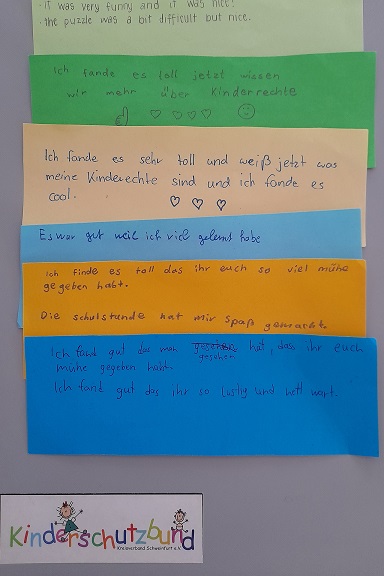 · it was very funny and it was nice!
· the puzzle was a bit difficult but nice.
Ich fande es toll jetzt wissen
wir mehr über Kinderrechte
Ich fande es sehr toll und weiß jetzt was
meine Kinderechte sind und ich fande es
cool.
Es war gut weil ich viel gelernt habe
Ich finde es toll das ihr euch so viel mühe
gegeben habt.
Die schulstunde hat mir Spaß gemacht.
Ich fand gut das man gesehen hat, dass ihr euch
mühe gegeben habt.
Ich fand gut das ihr so lustig und nett wart.
Kinderschutzbund
Kreisverband Schweinfurt e.V.